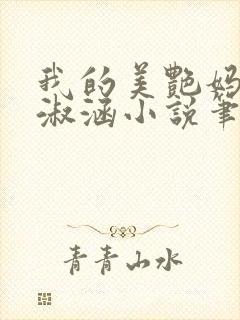 我的美艷妈
淑涵小説筆
青青山水